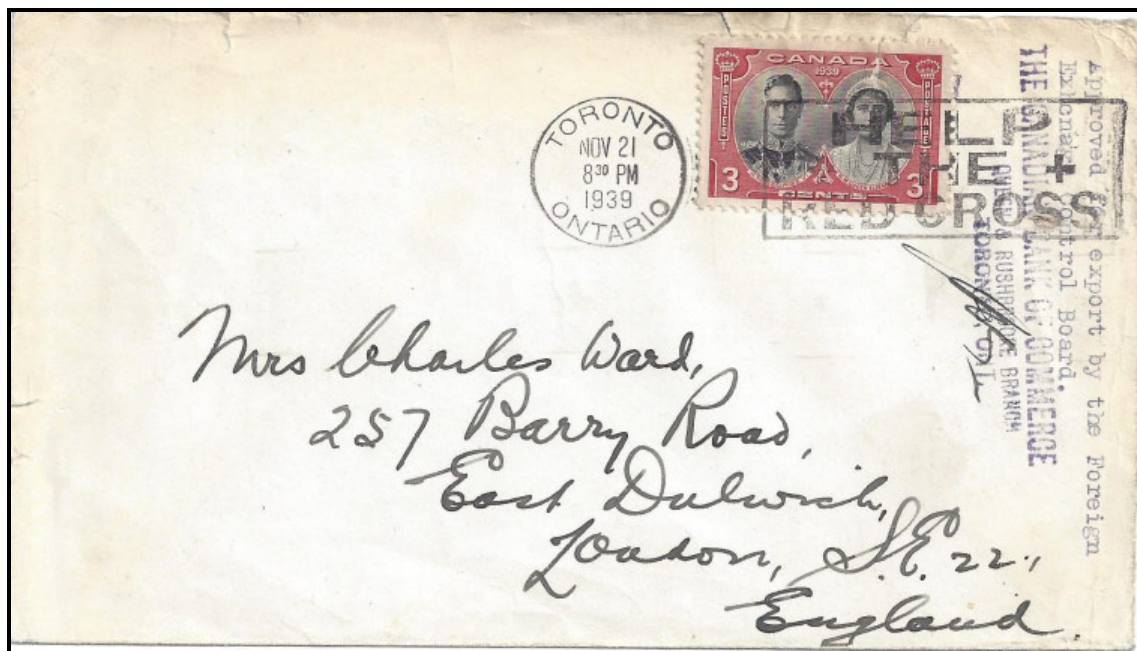 TORONTO
NOV 21
8 30 PM
1939
ONTARIO
CANADA
1939
POSTES POSTAGE
3 CENTS 3
HELP +
THE
RED CROSS
Approved for export by the Foreign
Control Board.
THE CANADIAN BANK OF COMMERCE
QUEEN & RUSHBROOKE BRANCH
TORONTO, ONT.
Mrs Charles Ward,
257 Barry Road,
East Dulwich,
London, S.E. 22.,
England.